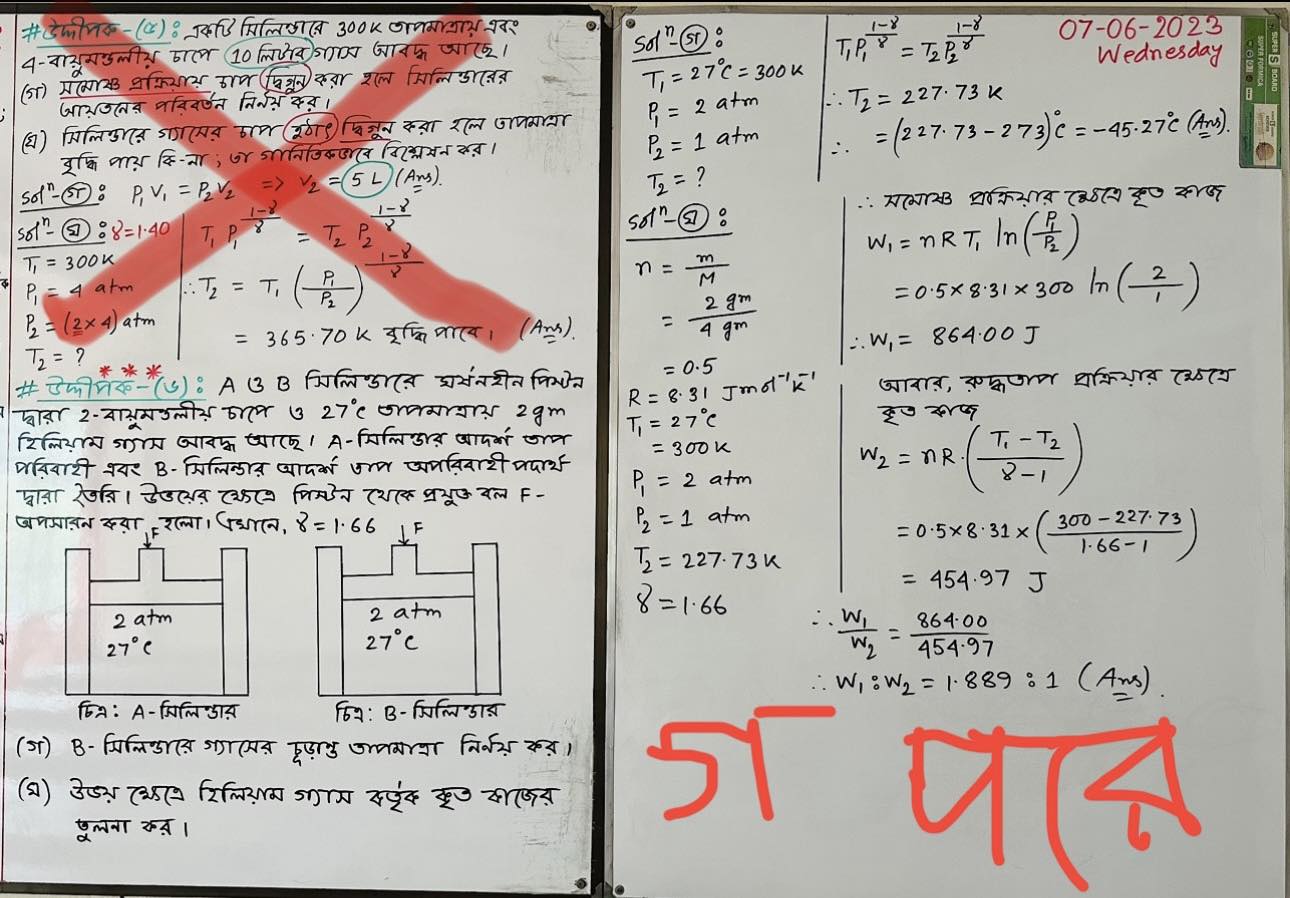 # উদ্দীপক-(৫): একটি সিলিন্ডারে 300K তাপমাত্রায় এবং
4-বায়ুমন্ডলীয় চাপে 10 লিটার গ্যাস আবদ্ধ আছে।
(গ) সমোষ্ণ প্রক্রিয়ায় চাপ দ্বিগুন করা হলে সিলিন্ডারের
আয়তনের পরিবর্তন নির্নয় কর।
(ঘ) সিলিন্ডারে গ্যাসের চাপ হঠাৎ দ্বিগুন করা হলে তাপমাত্রা
বৃদ্ধি পায় কি-না; তা গানিতিকভাবে বিশ্লেষন কর।
Solⁿ-(গ): P₁V₁ = P₂V₂ => V₂ = 5 L (Ans).
Solⁿ-(ঘ): γ=1.40
T₁ = 300K
P₁ = 4 atm
P₂ = (2×4) atm
T₂ = ?
T₁ P₁^((1-γ)/γ) = T₂ P₂^((1-γ)/γ)
∴ T₂ = T₁ (P₁/P₂)^((1-γ)/γ)
= 365.70 K বৃদ্ধি পাবে। (Ans).
* * *
# উদ্দীপক-(৬): A ও B সিলিন্ডারে ঘর্ষনহীন পিস্টন
দ্বারা 2-বায়ুমন্ডলীয় চাপে ও 27°C তাপমাত্রায় 2gm
হিলিয়াম গ্যাস আবদ্ধ আছে। A-সিলিন্ডার আদর্শ তাপ
পরিবাহী এবং B-সিলিন্ডার আদর্শ তাপ অপরিবাহী পদার্থ
দ্বারা তৈরি। উভয়ের ক্ষেত্রে পিস্টন থেকে প্রযুক্ত বল F-
অপসারন করা হলো। এখানে, γ = 1.66
F
F
2 atm
27°C
2 atm
27°C
চিত্র: A-সিলিন্ডার
চিত্র: B-সিলিন্ডার
(গ) B-সিলিন্ডারে গ্যাসের চূড়ান্ত তাপমাত্রা নির্নয় কর।
(ঘ) উভয় ক্ষেত্রে হিলিয়াম গ্যাস কর্তৃক কৃত কাজের
তুলনা কর।
07-06-2023
Wednesday
Solⁿ-(গ):
T₁ = 27°C = 300K
P₁ = 2 atm
P₂ = 1 atm
T₂ = ?
T₁P₁^((1-γ)/γ) = T₂P₂^((1-γ)/γ)
∴ T₂ = 227.73 K
∴ = (227.73 - 273)°C = -45.27°C (Ans).
Solⁿ-(ঘ):
n = m/M
= 2 gm/4 gm
= 0.5
R = 8.31 Jmol⁻¹K⁻¹
T₁ = 27°C
= 300K
P₁ = 2 atm
P₂ = 1 atm
T₂ = 227.73K
γ = 1.66
∴ সমোষ্ণ প্রক্রিয়ার ক্ষেত্রে কৃত কাজ
W₁ = nRT₁ ln(P₁/P₂)
= 0.5×8.31×300 ln(2/1)
∴ W₁ = 864.00 J
আবার, রুদ্ধতাপ প্রক্রিয়ার ক্ষেত্রে
কৃত কাজ
W₂ = nR.((T₁-T₂)/(γ-1))
= 0.5×8.31×((300-227.73)/(1.66-1))
= 454.97 J
∴ W₁/W₂ = 864.00/454.97
∴ W₁:W₂ = 1.889 : 1 (Ans).
গ পরে
SUPER BOARD
SUPER FORMICA